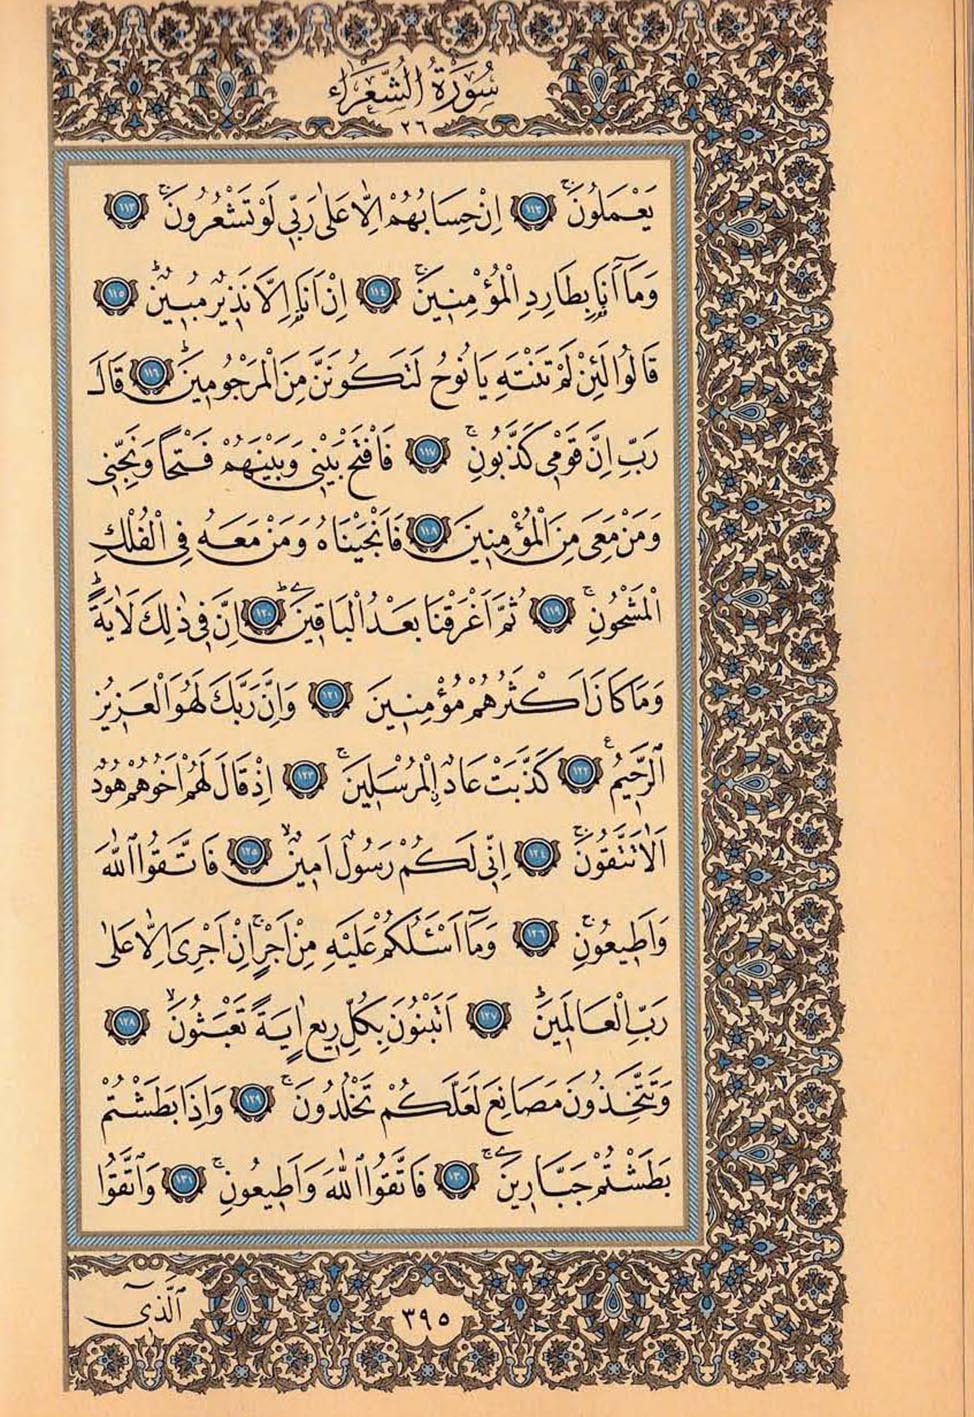 سُورَةُ الشُّعَرَاءِ
٢٦
يَعْمَلُونَۚ ﴿١١٢﴾ اِنْ حِسَابُهُمْ اِلَّا عَلٰى رَبّ۪ي لَوْ تَشْعُرُونَۚ ﴿١١٣﴾
وَمَٓا اَنَا۬ بِطَارِدِ الْمُؤْمِن۪ينَۚ ﴿١١٤﴾ اِنْ اَنَا۬ اِلَّا نَذ۪يرٌ مُب۪ينٌۜ ﴿١١٥﴾
قَالُوا لَئِنْ لَمْ تَنْتَهِ يَا نُوحُ لَتَكُونَنَّ مِنَ الْمَرْجُوم۪ينَۜ ﴿١١٦﴾ قَالَ
رَبِّ اِنَّ قَوْم۪ي كَذَّبُونِۚ ﴿١١٧﴾ فَافْتَحْ بَيْن۪ي وَبَيْنَهُمْ فَتْحًا وَنَجِّن۪ي
وَمَنْ مَعِيَ مِنَ الْمُؤْمِن۪ينَ ﴿١١٨﴾ فَاَنْجَيْنَاهُ وَمَنْ مَعَهُ فِي الْفُلْكِ
الْمَشْحُونِۚ ﴿١١٩﴾ ثُمَّ اَغْرَقْنَا بَعْدُ الْبَاق۪ينَۜ ﴿١٢٠﴾ اِنَّ ف۪ي ذٰلِكَ لَاٰيَةًۜ
وَمَا كَانَ اَكْثَرُهُمْ مُؤْمِن۪ينَ ﴿١٢١﴾ وَاِنَّ رَبَّكَ لَهُوَ الْعَز۪يزُ
الرَّح۪يمُ۟ ﴿١٢٢﴾ كَذَّبَتْ عَادٌۨ الْمُرْسَل۪ينَۚ ﴿١٢٣﴾ اِذْ قَالَ لَهُمْ اَخُوهُمْ هُودٌ
اَلَا تَتَّقُونَۚ ﴿١٢٤﴾ اِنّ۪ي لَكُمْ رَسُولٌ اَم۪ينٌۙ ﴿١٢٥﴾ فَاتَّقُوا اللّٰهَ
وَاَط۪يعُونِۚ ﴿١٢٦﴾ وَمَٓا اَسْـَٔلُكُمْ عَلَيْهِ مِنْ اَجْرٍۚ اِنْ اَجْرِيَ اِلَّا عَلٰى
رَبِّ الْعَالَم۪ينَۜ ﴿١٢٧﴾ اَتَبْنُونَ بِكُلِّ ر۪يعٍ اٰيَةً تَعْبَثُونَۙ ﴿١٢٨﴾
وَتَتَّخِذُونَ مَصَانِعَ لَعَلَّكُمْ تَخْلُدُونَۚ ﴿١٢٩﴾ وَاِذَا بَطَشْتُمْ
بَطَشْتُمْ جَبَّار۪ينَۚ ﴿١٣٠﴾ فَاتَّقُوا اللّٰهَ وَاَط۪يعُونِۚ ﴿١٣١﴾ وَاتَّقُوا
٣٩٥
الَّذ۪ٓي